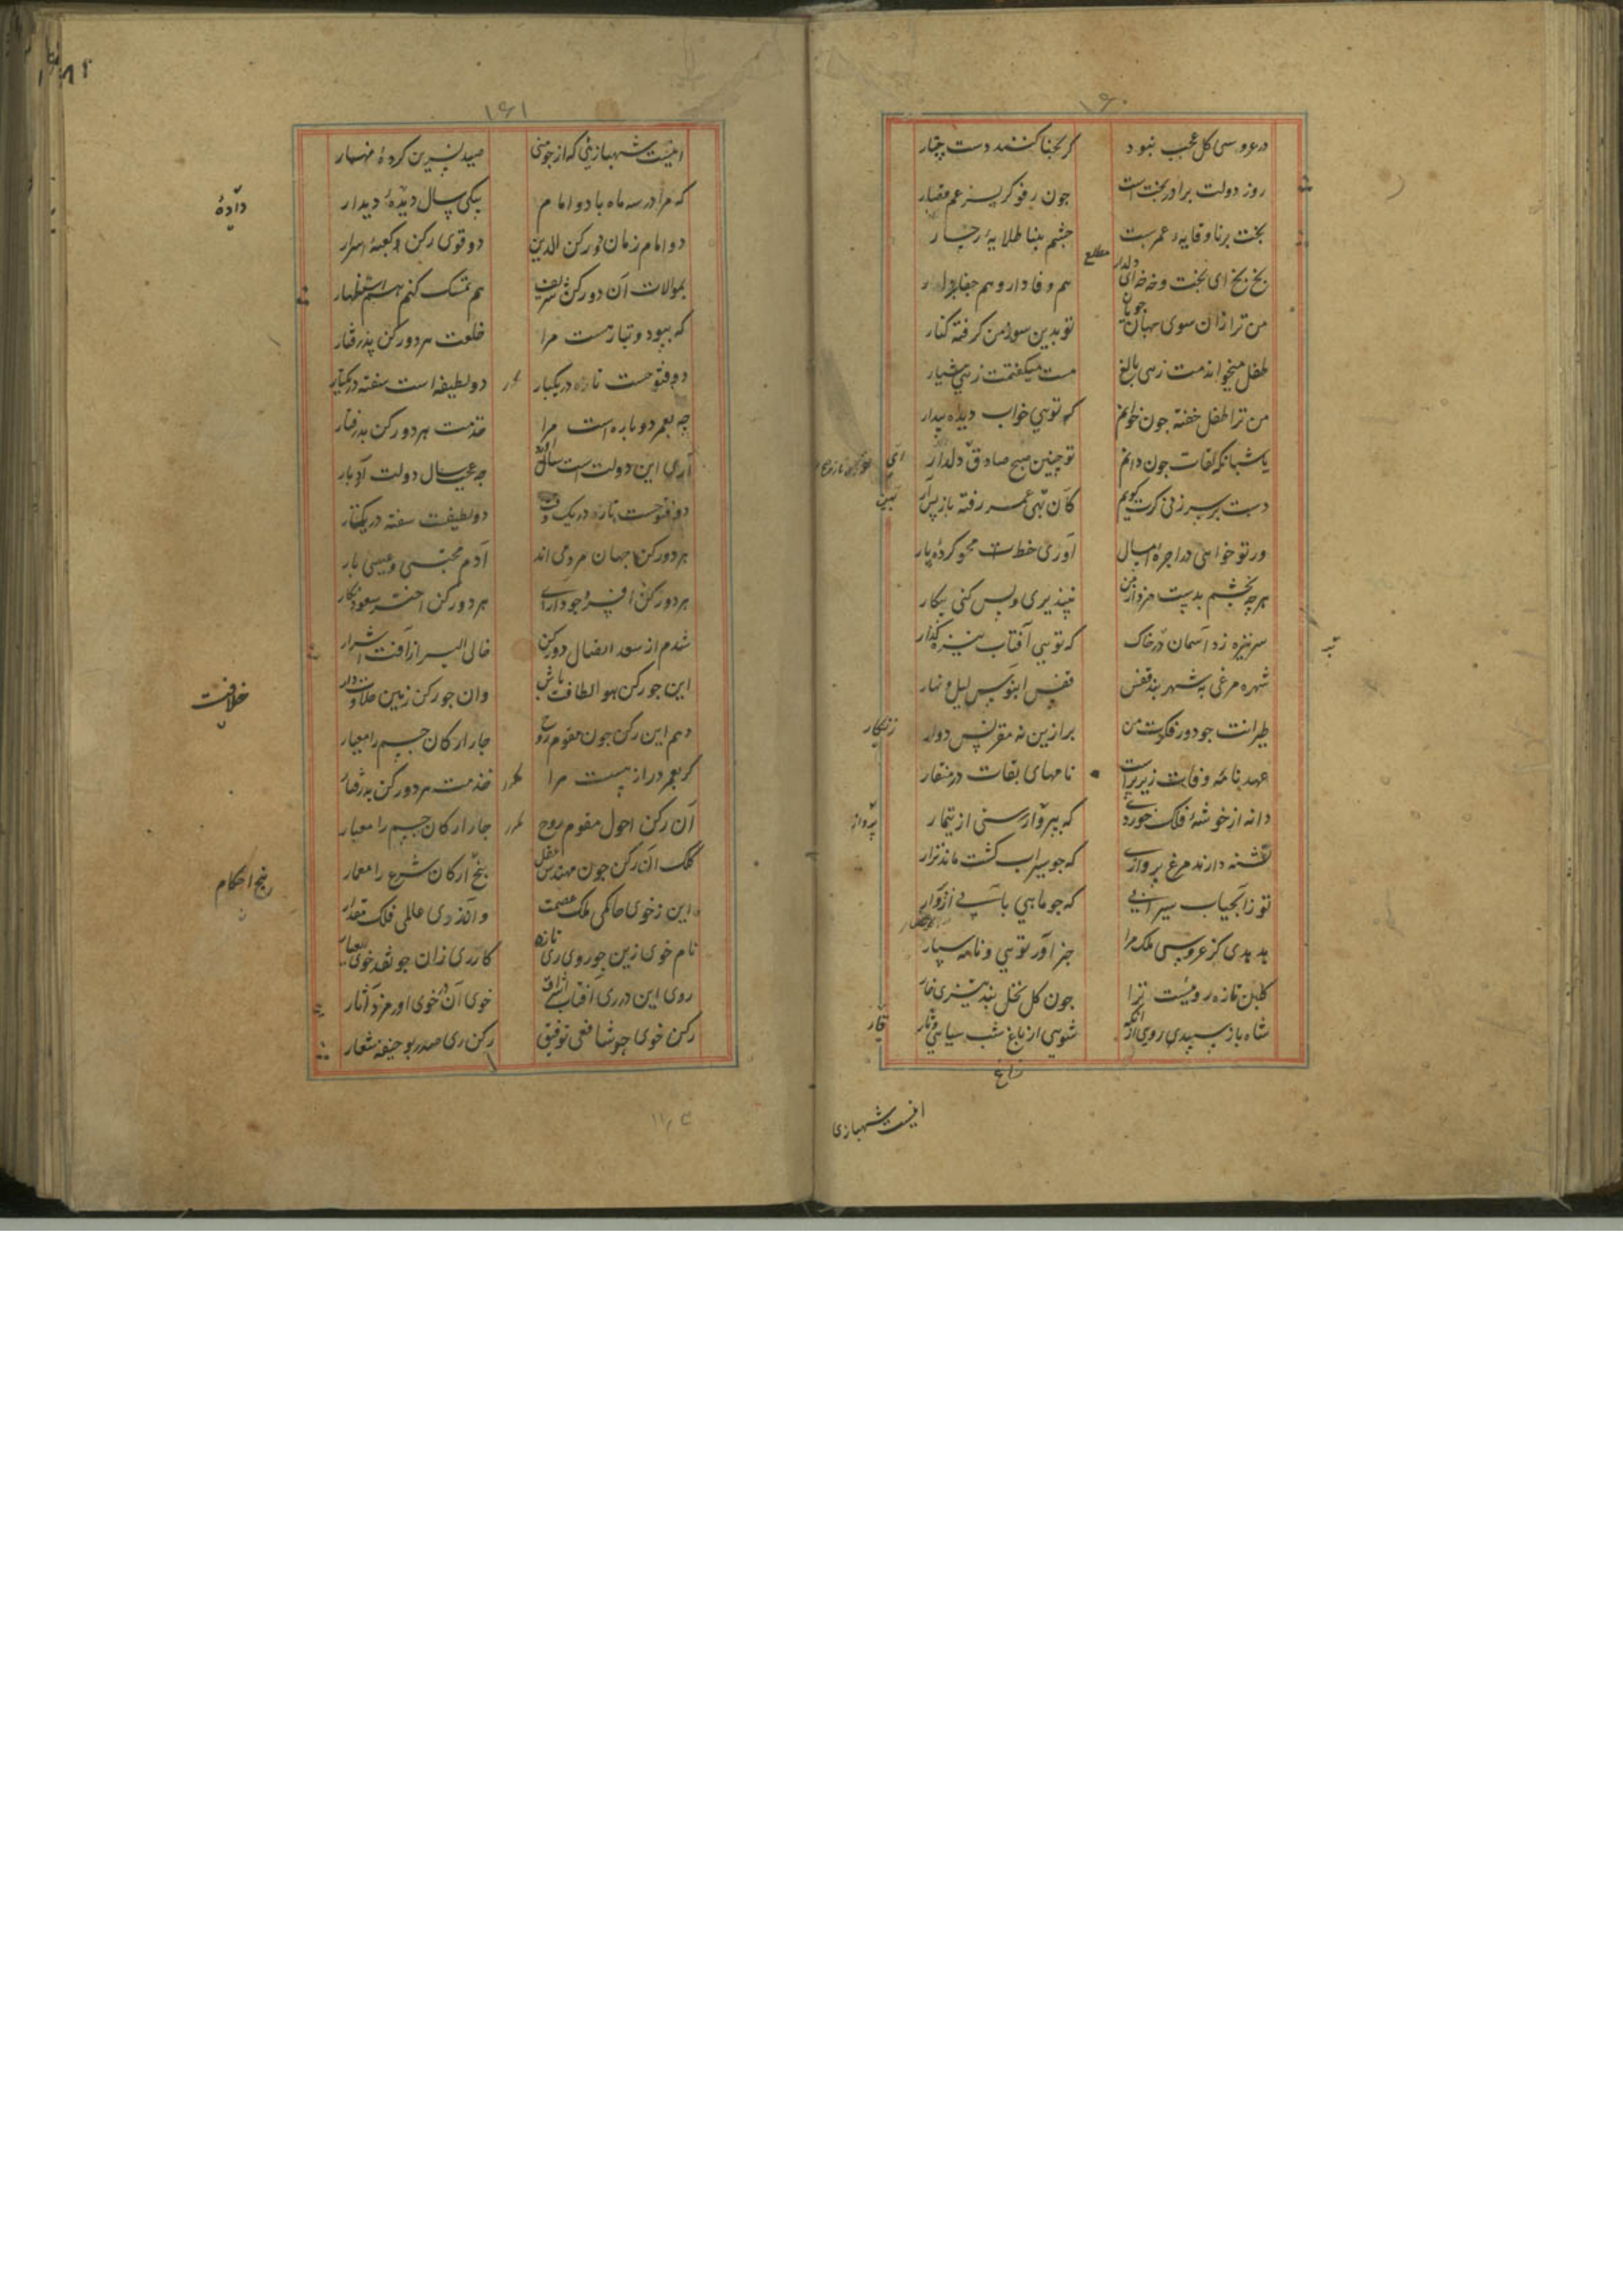 ۱۶۰
در عروسی کل عجب نبود کر بحنا کنند دست چنار
روز دولت برادر بخت است جون رفوکر پسر عم قصار
بخت برنا وقایه عمرست جشم بینا طلایه رخسار
مطلع
بخ بخ ای بخت و خه خه ای دلدار هم وفادار و هم جفا بردار
من ترا زان سوی جهان جویان تو بدین سو ز من کرفته کنار
طفل میخواندمت زهی بالغ مست میکفتمت زهی هشیار
من ترا طفل خفته جون خوانم که تویی خواب دیده بیدار
یا شبانکه لقات جون دانم تو چنین صبح صادق دلدار
دست بر سر زنی کرت کویم کان بهی عمر رفته باز پس آر
ور تو خواهی در اجره امسال آوری خط محو کرده پار
هرچه بخشم بدست مزد از من نپذیری و پس کنی بیکار
سر نیزه زد آسمان در خاک که تویی آفتاب نیزه کذار
شهره مرغی به شهر بند قفس قفس ابنوس لیل و نهار
طیرانت جو دور فکرت من بر ازین نه مقرنس دوار
زنکار
عهد نامه وفات زیر پر است نامهای بقات در منقار
دانه از خوشه فلک خوردی که بپرواز رستی از تیمار
تشنه دارند مرغ پروازی که جو سیراب کشت ماند نزار
تو ز آب حیات سیرابی که جو ماهی باشی از
هدهدی کز عروسی ملک مرا خبر آور تویی و نامه سپار
کلبن تازه رویست ترا جون کل نخل بند تیزی خار
شاه باز سپیدی روی ازانکه شویی از باغ شب سیاهی
زاغ
اینست شهبازی
۱۶۱
اینست شهبازیئی که از جو منی صید نسرین کرده منهار
که مرا در سه ماه با دو امام بیکی سال دیده دیدار
داده
دو امام زمان دو رکن الدین دو قوی رکن و کعبه اسرار
بموالات آن دو رکن شریف هم تمسک کنم هم استظهار
که ببود و تبارست مرا خلعت هر دو رکن پذرفتار
دو فتوحست تازه در یکبار دو لطیفه است سفته در یکتار
چه بعمر دوباره است مرا خدمت هر دو رکن پذرفتار
آری این دولت است سال آورد چه عجب سال دولت آرد بار
دو فتوحست تازه در یک وقت دو لطیفست سفته در یکتار
هر دو رکن جهان مردمی اند آدم مجتبی و عیسی بار
هر دو رکن افسر وجود آرای هر دو رکن اختر سعود نکار
شدم از سعد اتصال دو رکن خالی السیر از آفت اشرار
این جو رکن هوا لطافت پاش وان جو رکن زمین خلافت دار
خلافت
دهم این رکن جون مقوم روح چار ارکان جسم را معیار
کر بعمر دراز هست مرا خدمت هر دو رکن پذرفتار
آن رکن احول مقوم روح چار ارکان جسم را معیار
کلک آن رکن جون مهندس عقل پنج ارکان شرع را معمار
پنج احکام
این ز خوی حاکمی ملک عصمت وان ز ری عالمی فلک مقدار
نام خوی زین جو روی ری تازه کار ری زان جو نقد خوی بعیار
روی این در ری آفتاب اشراق خوی آن در خوی اورمزد آثار
رکن خوی جو شافعی توفیق رکن ری صدر بو حنیفه شعار